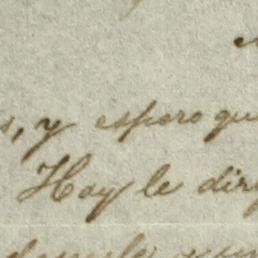 s, y espero qu
Hoy le dir